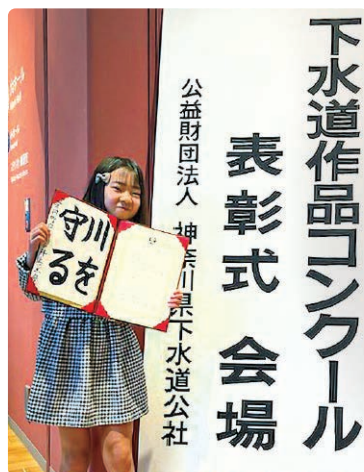 下水道作品コンクール
表彰式 会場
公益財団法人 神奈川県下水道公社
川を
守る